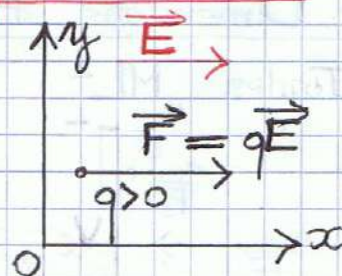 y E⃗
F⃗ = qE⃗
q>0
O x